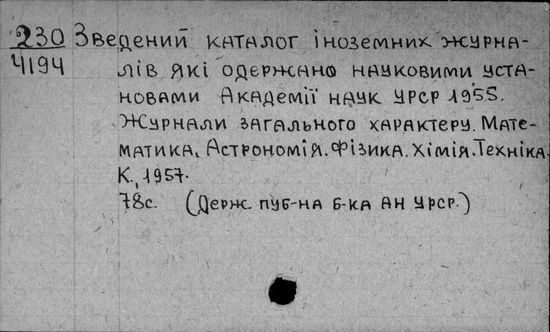 230 Зведений каталог іноземних журна-
4194 лів які одержано науковими уста-
новами Академії наук УРСР 1955.
Журнали загального характеру. Мате-
матика. Астрономія. Фізика. Хімія. Техніка.
К., 1957.
78с. (Держ. пуб-на б-ка АН УРСР.)